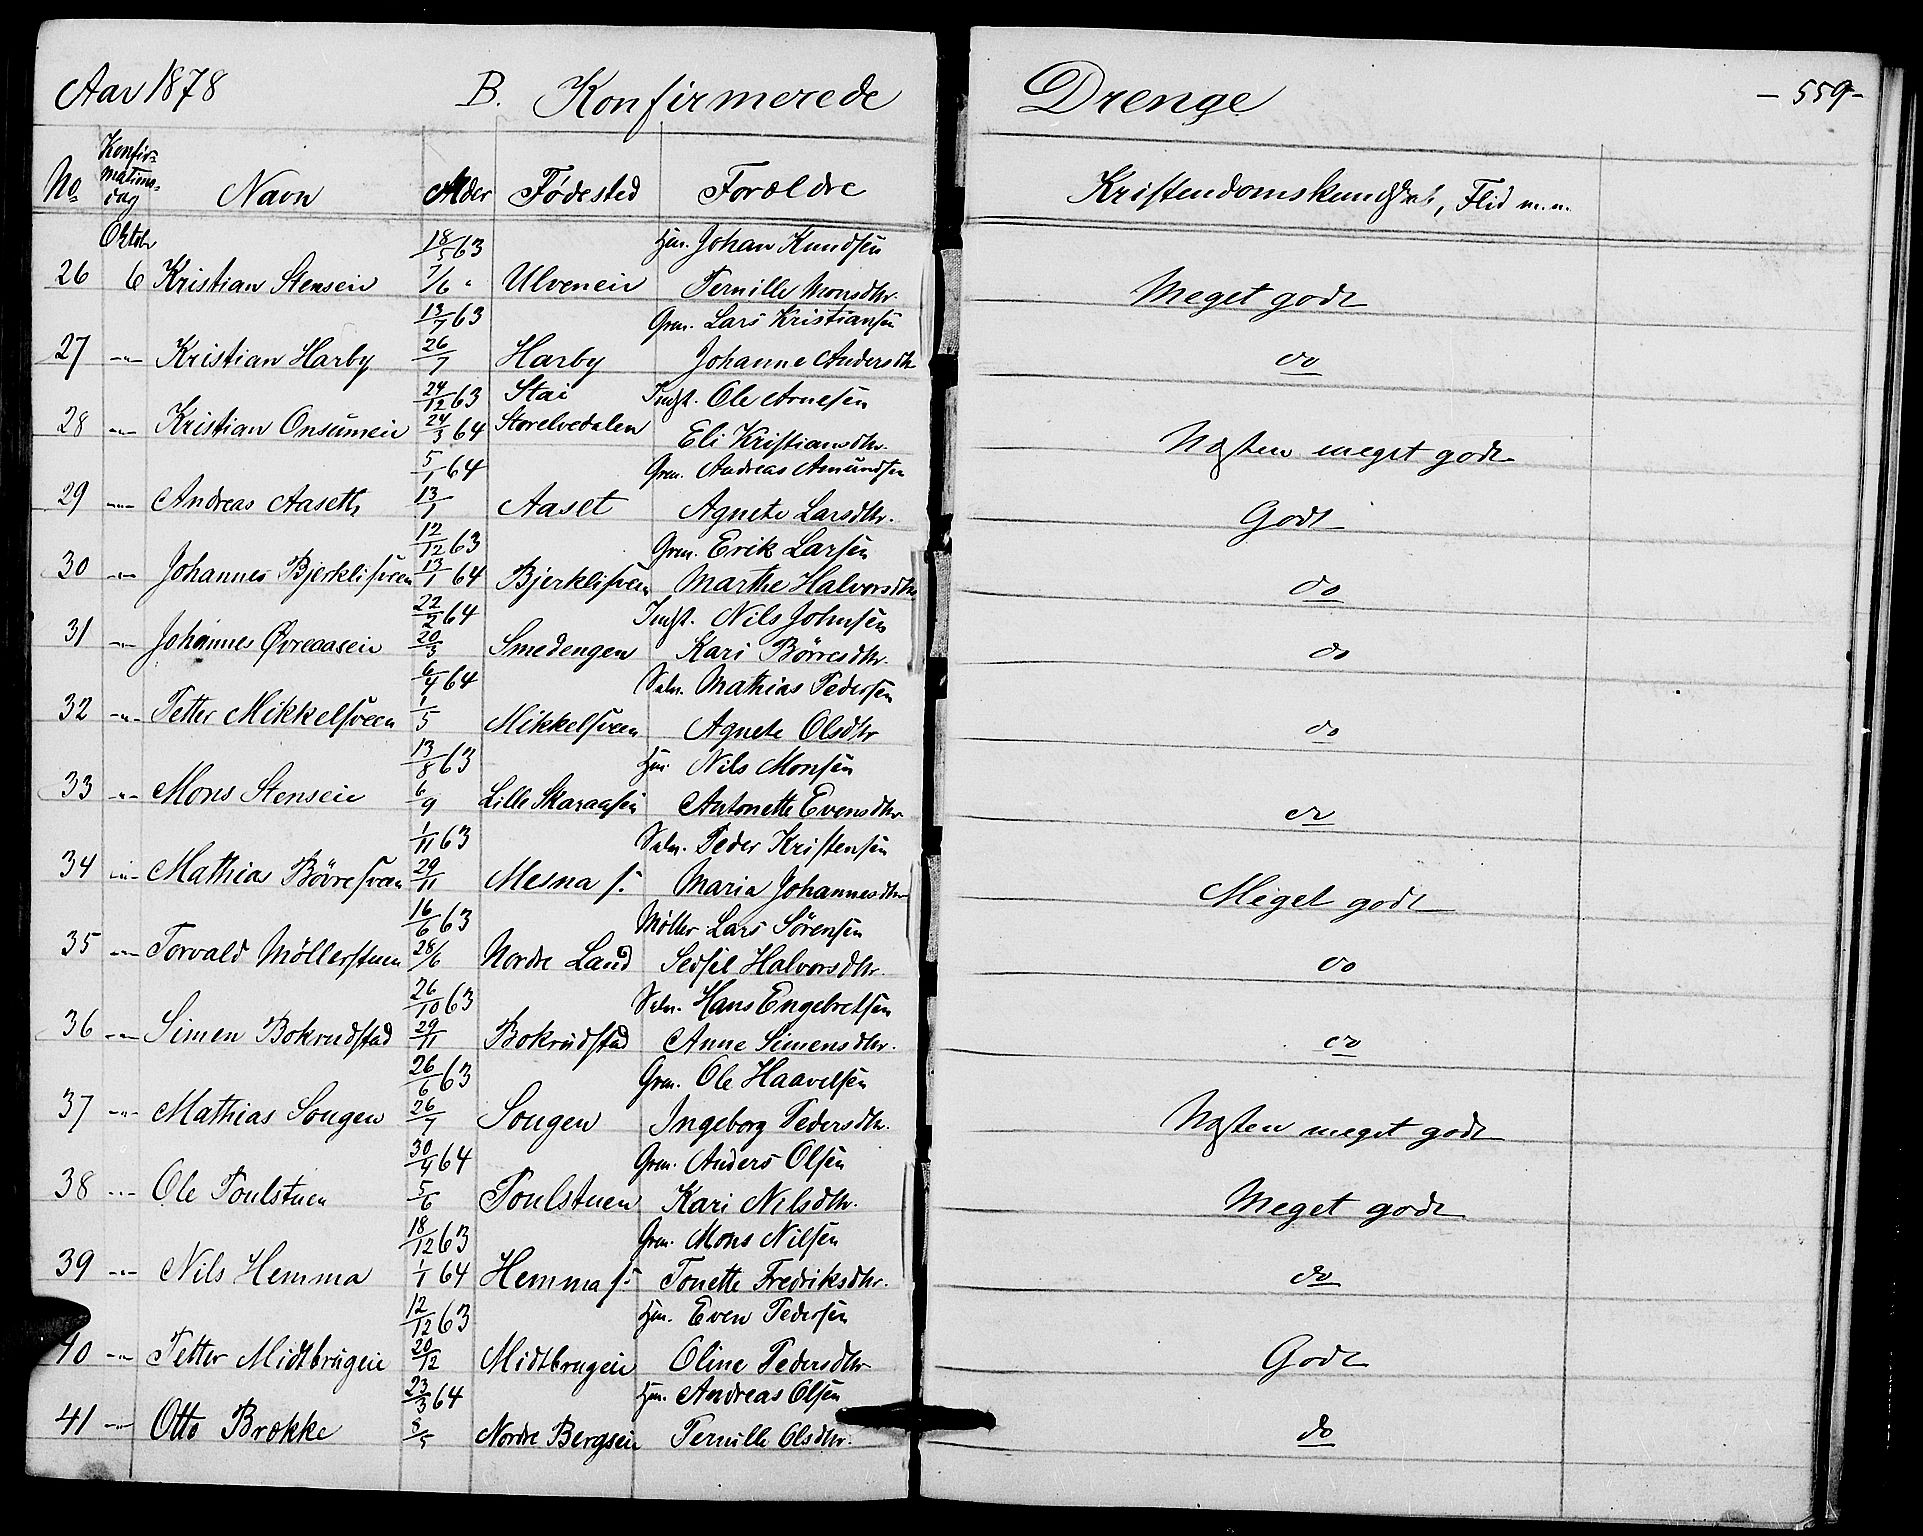 Aar 1878 B. Konfirmerede Drenge - 559-
No Konfirmations-dag Navn Alder Fødested Forældre Kristendomskundskab, Flid m.m.
Oktobr 18/5 63 Hm. Johan Knudsen
26 6 Kristian Stenseie 7/6 " Ulveneie Pernille Monsdtr. Meget godt
13/7 63 Grm. Lars Kristiansen
27 -"- Kristian Harby 26/7 Harby Johanne Andersdtr do
24/12 63 Stai Indst. Ole Arnesen
28 -"- Kristian Onsumeie 24/3 64 Storelvedalen Eli Kristiansdtr. Næsten meget godt
5/1 64 Grm. Andreas Amundsen
29 -"- Andreas Aaseth 13/1 Aaset Agnete Larsdtr. Godt
12/12 63 Grm. Erik Larsen
30 -"- Johannes Bjerklisveen 13/1 64 Bjerklisveen Marthe Halvorsdtr do
22/2 64 Indst. Nils Johnsen
31 -"- Johannes Øvreaaseie 20/3 Smedengen Kari Börresdtr. do
6/4 64 Selv. Mathias Pedersen
32 -"- Petter Mikkelsveen 1/5 Mikkelsveen Agnete Olsdtr do
13/8 63 Hm. Nils Monsen
33 -"- Mons Stenseie 6/9 Lille Skaraasen Antonette Evensdtr do
1/11 63 Selv. Peder Kristensen
34 -"- Mathias Börresveen 29/11 Mesna s. Maria Johannesdtr Meget godt
16/6 63 Möller Lars Sörensen
35 -"- Torvald Möllerstuen 28/6 Nordre Land Sedsel Halvorsdtr. do
26/10 63 Selv. Hans Engebretsen
36 -"- Simen Bokrudstad 29/11 Bokrudstad Anne Simensdtr. do
26/6 63 Grm. Ole Haavelsen
37 -"- Mathias Sougen 26/7 Sougen Ingeborg Pedersdtr. Næsten meget godt
30/4 64 Grm. Anders Olsen
38 -"- Ole Poulstuen 5/6 Poulstuen Kari Nilsdtr. Meget godt
18/12 63 Grm. Mons Nilsen
39 -"- Nils Hemma 1/1 64 Hemma s. Tonette Fredriksdtr. do
12/12 63 Hm. Even Pedersen
40 -"- Petter Midtbrugeie 20/12 Midtbrugeie Oline Pedersdtr Godt
23/3 64 Hm. Andreas Olsen
41 -"- Otto Brække 8/5 Nordre Bergseie Pernille Olsdtr. do